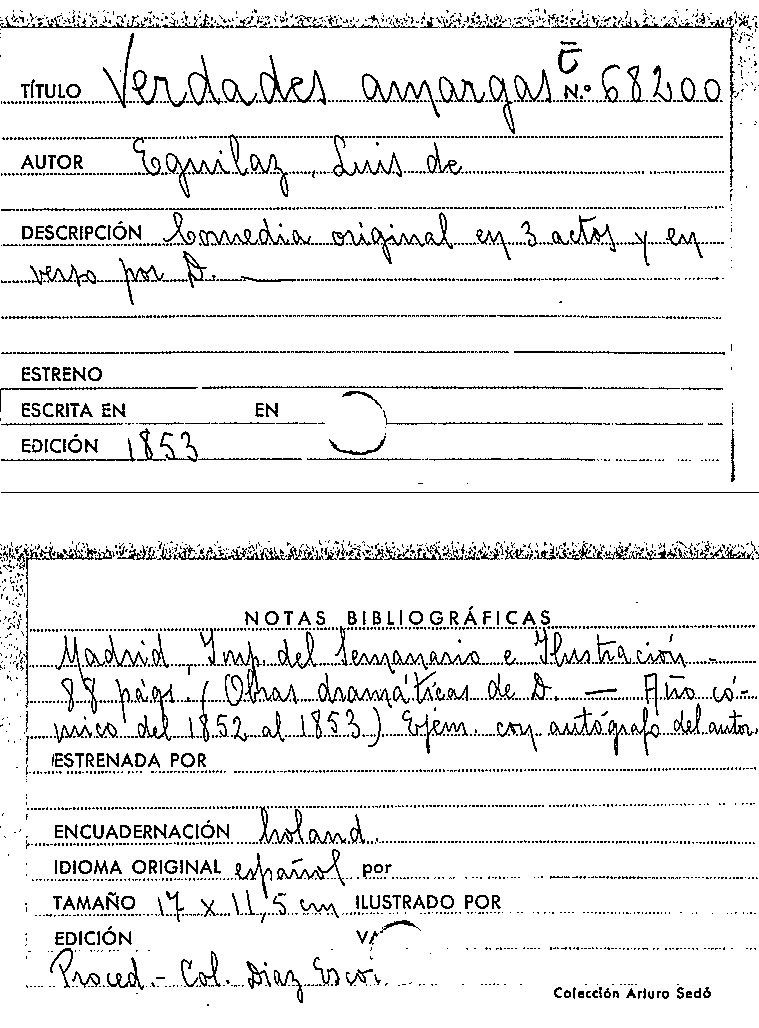 TÍTULO Verdades amargas N.º 68200
AUTOR Eguilaz, Luis de
DESCRIPCIÓN Comedia original en 3 actos y en
verso por D. —
ESTRENO
ESCRITA EN EN
EDICIÓN 1853
NOTAS BIBLIOGRÁFICAS
Madrid, Imp. del Semanario e Ilustración -
88 págs. (Obras dramáticas de D. — Año có-
mico del 1852 al 1853) Ejem. con autógrafo del autor.
ESTRENADA POR
ENCUADERNACIÓN holand.
IDIOMA ORIGINAL español por
TAMAÑO 17 x 11,5 cm ILUSTRADO POR
EDICIÓN
Proced.- Col. Diaz Escov.
Colección Arturo Sedó